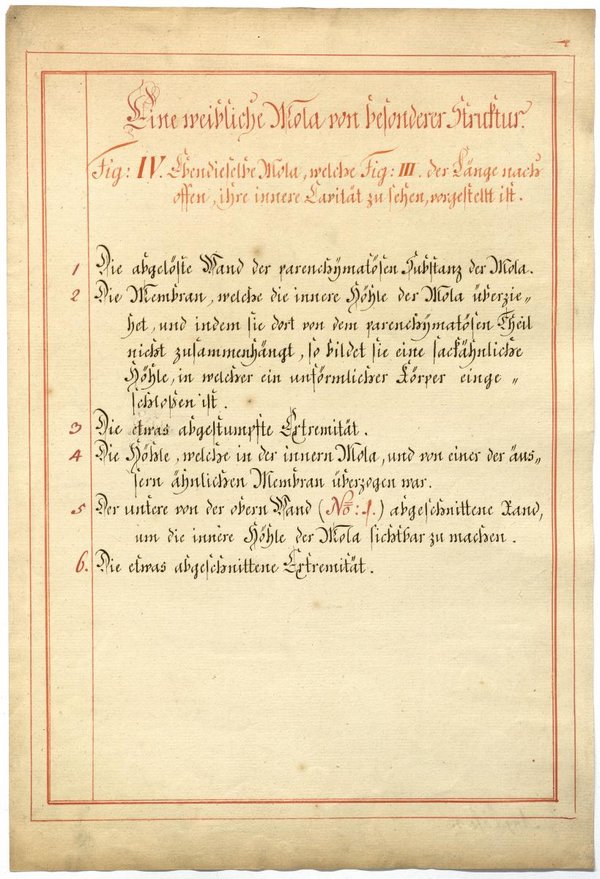 Eine weibliche Mola von besonderer Struktur.
Fig: IV. Ebendieselbe Mola, welche Fig: III. der Länge nach
offen, ihre innere Cavität zu sehen, vorgestellt ist.
1 Die abgelöste Wand der parenchymatösen Substanz der Mola.
2 Die Membran, welche die innere Höhle der Mola überzie„
het, und indem sie dort von dem parenchymatösen Theil
nicht zusammenhängt, so bildet sie eine sackähnliche
Höhle, in welcher ein unförmlicher Körper einge„
schloßen ist.
3 Die etwas abgestumpfte Extremität.
4 Die Höhle, welche in der innern Mola, und von einer der äus„
sern ähnlichen Membran überzogen war.
5 Der untere von der obern Wand (No: 1.) abgeschnittene Rand,
um die innere Höhle der Mola sichtbar zu machen.
6. Die etwas abgeschnittene Extremität.